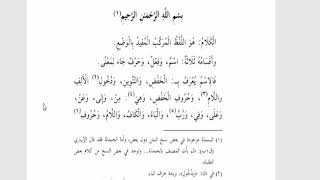 بِسْمِ اللَّهِ الرَّحْمَنِ الرَّحِيمِ (١)
الْكَلَامُ: هُوَ اللَّفْظُ الْمُرَكَّبُ الْمُفِيدُ بِالْوَضْعِ.
وَأَقْسَامُهُ ثَلَاثَةٌ: اسْمٌ، وَفِعْلٌ، وَحَرْفٌ جَاءَ لِمَعْنًى.
فَالِاسْمُ يُعْرَفُ بِـ: الْخَفْضِ، وَالتَّنْوِينِ، وَدُخُولِ(٢) الْأَلِفِ
وَاللَّامِ(٣)، وَحُرُوفِ الْخَفْضِ، وَهِيَ(٤): مِنْ، وَإِلَى، وَعَنْ،
وَعَلَى، وَفِي، وَرُبَّ(٥)، وَالْبَاءُ، وَالْكَافُ، وَاللَّامُ، وَحُرُوفِ(٦)
(١) البسملة موجودة في بعض نسخ المتن دون بعض، وأما الحمدلة فقد قال الإبياري
المصنف بالحمدلة، وتوجد في بعض النسخ من كلام بعض
الطلبة.
(٢) في وزيادة حرف الباء